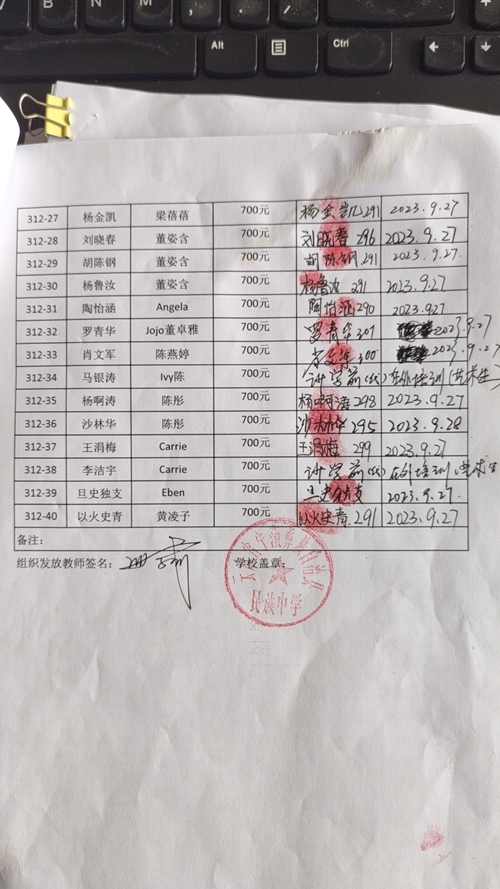 B N M
Alt Ctrl
312-27 杨金凯 梁蓓蓓 700元 杨金凯 291 2023.9.27
312-28 刘晓春 董姿含 700元 刘晓春 296 2023.9.27
312-29 胡陈钢 董姿含 700元 胡陈钢 291 2023.9.27
312-30 杨鲁汝 董姿含 700元 杨鲁汝 291 2023.9.27
312-31 陶怡涵 Angela 700元 陶怡涵 290 2023.9.27
312-32 罗青华 Jojo董卓雅 700元 罗青华 301 2023.9.27
312-33 肖文军 陈燕婷 700元 肖文军 300 2023.9.27
312-34 马银涛 Ivy陈 700元 计学前(代) 在外培训(艺术生)
312-35 杨啊涛 陈彤 700元 杨啊涛 298 2023.9.27
312-36 沙林华 陈彤 700元 沙林华 295 2023.9.28
312-37 王涓梅 Carrie 700元 王涓梅 299 2023.9.27
312-38 李洁宇 Carrie 700元 计学前(代) 在外培训
312-39 旦史独支 Eben 700元 旦史独支 2023.9.27.
312-40 以火史青 黄凌子 700元 以火史青 291 2023.9.27
备注:
组织发放教师签名: 学校盖章:
民族中学